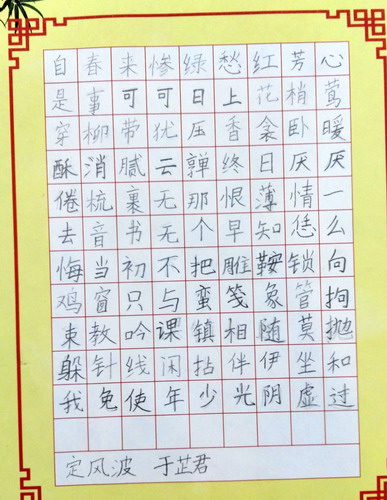 自春来惨绿愁红芳心
是事可可日上花梢莺
穿柳带犹压香衾卧暖
酥消腻云亸终日厌厌
倦梳裹无那恨薄情一
去音书无个早知恁么
悔当初不把雕鞍锁向
鸡窗只与蛮笺象管拘
束教吟课镇相随莫抛
躲针线闲拈伴伊坐和
我免使年少光阴虚过
定风波 于芷君